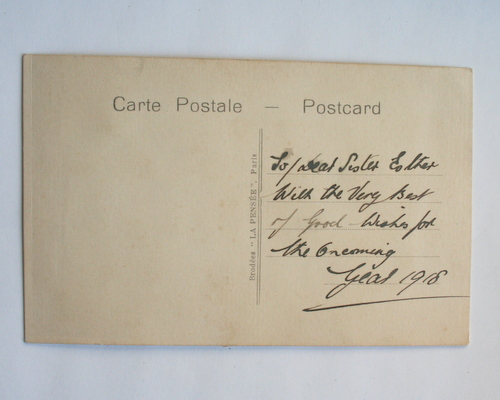 Carte Postale — Postcard
Brodées "LA PENSÉE", Paris
To/Dear Sister Esther
With the Very Best
of Good Wishes for
the Oncoming
Year 1918